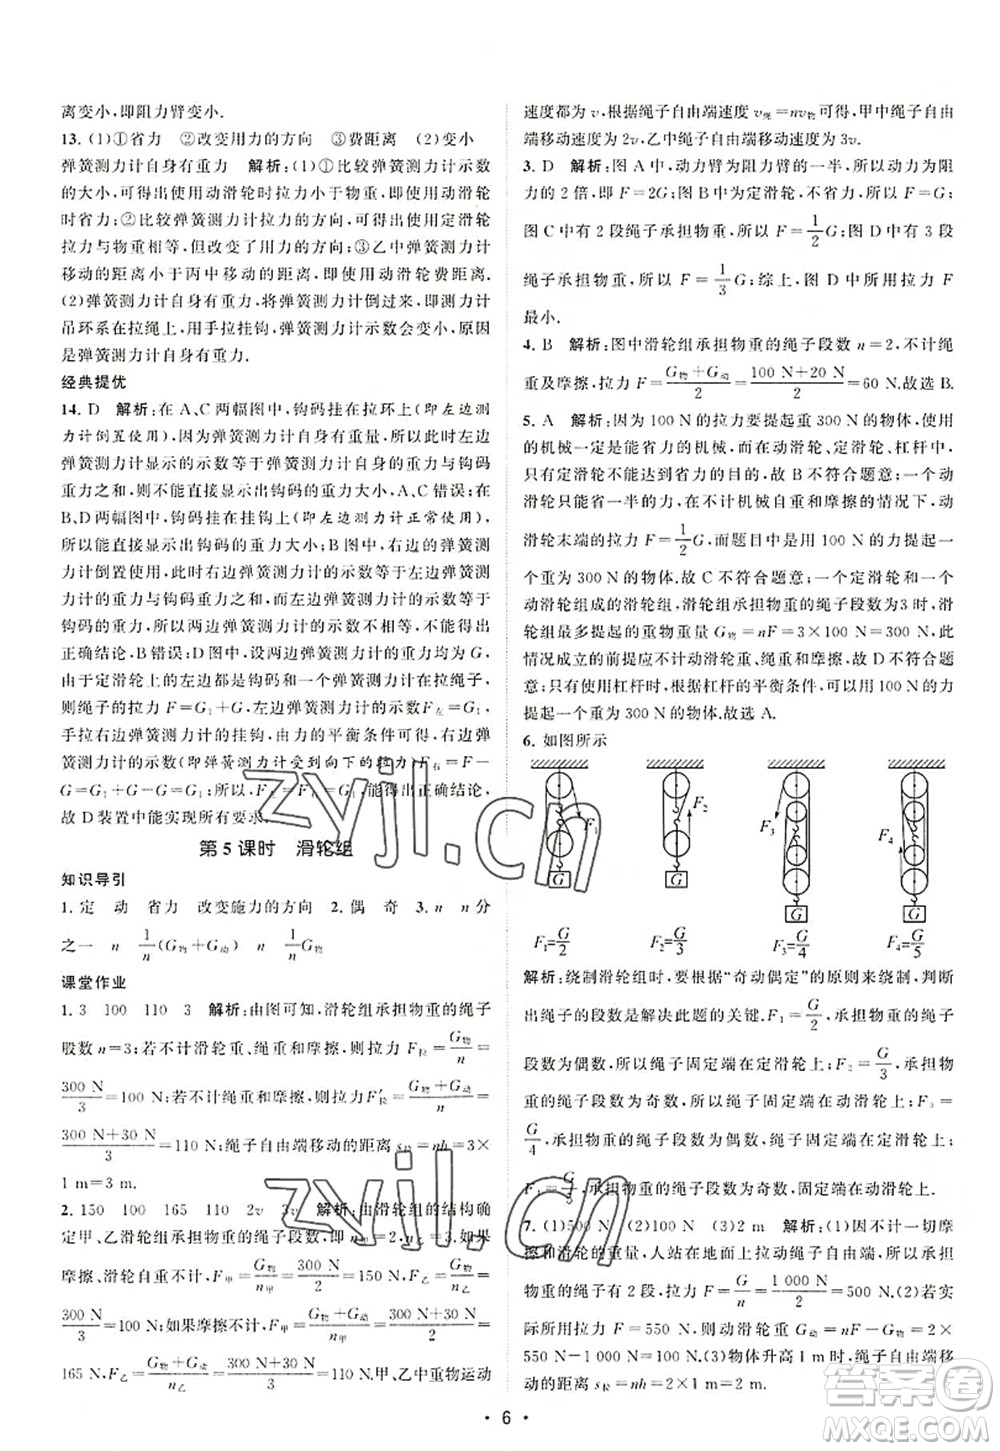 离变小,即阻力臂变小.
13. (1)①省力 ②改变用力的方向 ③费距离 (2)变小
弹簧测力计自身有重力 解析:(1)①比较弹簧测力计示数
的大小,可得出使用动滑轮时拉力小于物重,即使用动滑轮
时省力;②比较弹簧测力计拉力的方向,可得出使用定滑轮
拉力与物重相等,但改变了用力的方向;③乙中弹簧测力计
移动的距离小于丙中移动的距离,即使用动滑轮费距离.
(2)弹簧测力计自身有重力,将弹簧测力计倒过来,测力计
吊环系在拉绳上,用手拉挂钩,测力计示数会变小,原因是
弹簧测力计自身有重力.
经典提优
14. D 解析:在A、C两幅图中,钩码挂在拉环上(即左边测
力计倒置使用),由于测力计自身有重量,所以使得左边弹
簧测力计显示的示数等于左边弹簧测力计的重力与钩码
重力之和,则不能直接显示出钩码的重力大小,A、C错误;在
B、D两幅图中,钩码挂在挂钩上(即左边测力计正常使用),
所以能直接显示出钩码的重力大小;而B图中右边弹簧测
力计倒置使用,此时右边弹簧测力计的示数等于右边弹簧
测力计的重力与钩码重力之和,则右边测力计示数不等于
钩码的重力,所以不能得出两弹簧测力计的示数相等,得出
正确结论,B错误;D图中,设两边弹簧测力计的重力为G,
由于定滑轮上的左边是钩码和弹簧测力计在拉绳子,
则绳子的拉力F=G₁+G,左边弹簧测力计的示数F左=G₁,
手拉右边弹簧测力计的挂钩,由力的平衡条件可知,右边弹
簧测力计的示数(即弹簧测力计受到的拉力)F右=F-
G=G₁+G-G=G₁,所以,示数相等,能得出正确结论,
故D装置中能实现所有要求.
第5课时 滑轮组
知识导引
1. 定 动 省力 改变施力的方向 2. 偶 奇 3. n n分
之一 n 1/n(G物+G动) n 1/n G物
课堂作业
1. 3 100 110 3 解析:由图可知,滑轮组承担物重的绳子
股数n=3;若不计滑轮重、绳重和摩擦,则拉力F拉=G物/n=
300 N/3=100 N;若不计绳重和摩擦,则拉力F′拉=(G物+G动)/n=
(300 N+30 N)/3=110 N;绳子自由端移动的距离s拉=nh=3×
1 m=3 m.
2. 150 100 165 110 2v 3v 解析:由滑轮组的结构确
定甲、乙滑轮组承担物重的绳子段数分别为n甲=2,n乙=3;如果
摩擦、滑轮重不计,则F甲=G物/n甲=300 N/2=150 N,F乙=G物/n乙=
300 N/3=100 N;如果摩擦不计,F甲=(G物+G动)/n甲=(300 N+30 N)/2=
165 N,F乙=(G物+G动)/n乙=(300 N+30 N)/3=110 N;甲、乙中重物运动
速度都为v,根据绳子自由端速度v绳=nv物可得,甲中绳子自由
端移动速度为2v,乙中绳子自由端移动速度为3v.
3. D 解析:图A中,动力臂为阻力臂的一半,所以动力为阻
力的2倍,即F=2G;图B中为定滑轮,不省力,所以F=G;
图C中有2段绳子承担物重,所以F=1/2 G;图D中有3段
绳子承担物重,所以F=1/3 G;综上,图D中所用拉力F
最小.
4. B 解析:图中滑轮组承担物重的绳子段数n=2,不计绳
重及摩擦,拉力F=(G物+G动)/2=(100 N+20 N)/2=60 N.故选B.
5. A 解析:因为100 N的拉力要提起重300 N的物体,使用
的机械一定是能省力的机械,而在动滑轮、定滑轮、杠杆中,
只有定滑轮不能达到省力的目的,故B不符合题意;一个动
滑轮只能省一半的力,在不计机械自重和摩擦的情况下,动
滑轮末端的拉力F=1/2 G,而题目中要求用100 N的力提起
一个重为300 N的物体,故C不符合题意;一个定滑轮和一个
动滑轮组成的滑轮组,滑轮组承担物重的绳子段数为3时,滑
轮组最多提起的重物重量G物=nF=3×100 N=300 N,此
情况成立的前提应不计动滑轮重、绳重和摩擦,故D不符合
题意;只有使用杠杆时,根据杠杆的平衡条件,可用100 N的力
提起一个重为300 N的物体.故选A.
6. 如图所示
F₁ F₂ F₃ F₄
G G G G
F₁=G/2 F₂=G/3 F₃=G/4 F₄=G/5
解析:绕制滑轮组时,要根据“奇动偶定”的原则来绕制,判断
出绳子的段数是解决此题的关键.F₁=G/2,承担物重的绳子
段数为偶数,所以绳子固定端在定滑轮上;F₂=G/3,承担物
重的绳子段数为奇数,所以,绳子固定端在动滑轮上;F₃=
G/4,承担物重的绳子段数为偶数,固定端在定滑轮上;
F₄=G/5,承担物重的绳子段数为奇数,固定端在动滑轮上.
7. (1)500 N (2)100 N (3)2 m 解析:(1)因不计一切摩
擦和滑轮的重量,人站在地面上拉动绳子自由端,所以物体
由2段绳子承担,拉力F=G/n=1 000 N/2=500 N.(2)若在实
际所用的拉力F=550 N,则动滑轮重G动=nF-G物=2×
550 N-1 000 N=100 N.(3)物体升高1 m时,绳子自由端移
动的距离s拉=nh=2×1 m=2 m.
· 6 ·
zyjl.cn
zyjl.cn
答案圈
MXQE.COM